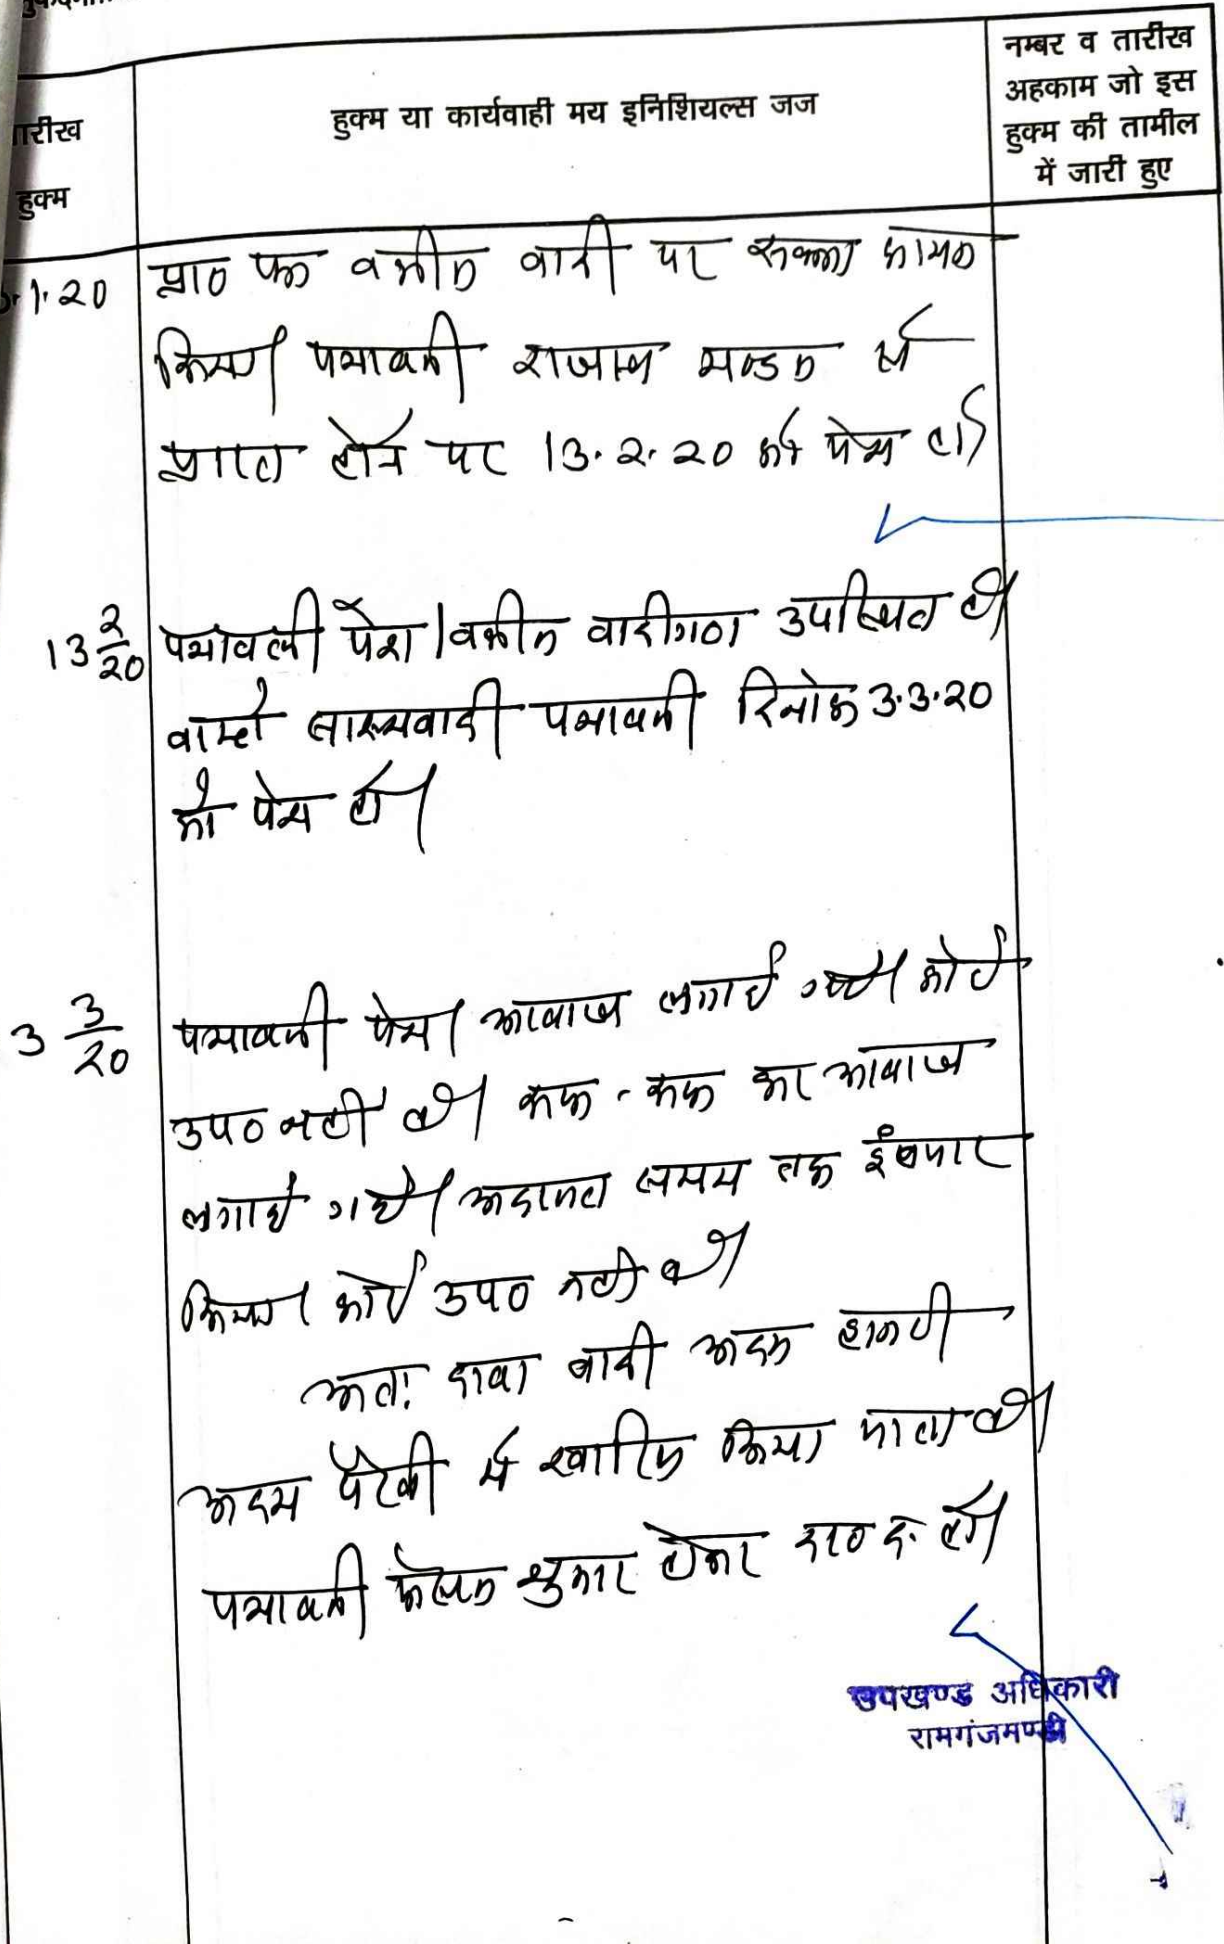 तारीख
हुक्म
हुक्म या कार्यवाही मय इनिशियल्स जज
नम्बर व तारीख
अहकाम जो इस
हुक्म की तामील
में जारी हुए
1.20 प्रा० पत्र वकील वादी पर कायम
किया। पत्रावली राजस्व मण्डल से
प्राप्त होने पर 13.2.20 को पेश हो।
13 2/20 पत्रावली पेश। वकील वादीगण उपस्थित है।
वास्ते साक्ष्यवादी पत्रावली दिनांक 3.3.20
को पेश हो।
3 3/20 पत्रावली पेश। आवाज लगाई गयी। कोई
उप० नही है। रूक-रूक कर आवाज
लगाई गई। अदालत समय तक इंतजार
किया। कोई उप० नही है।
अतः दावा वादी अदम हाजरी
अदम पैरवी में खारिज किया जाता है।
पत्रावली फैसल शुमार होकर दा० द. हो।
उपखण्ड अधिकारी
रामगंजमण्डी